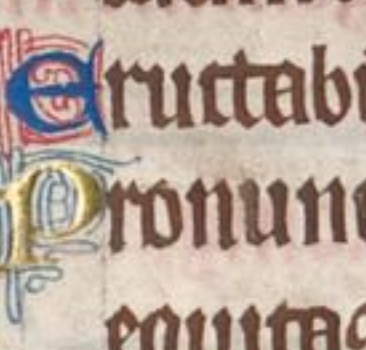 Eructabi
Pronun
equita